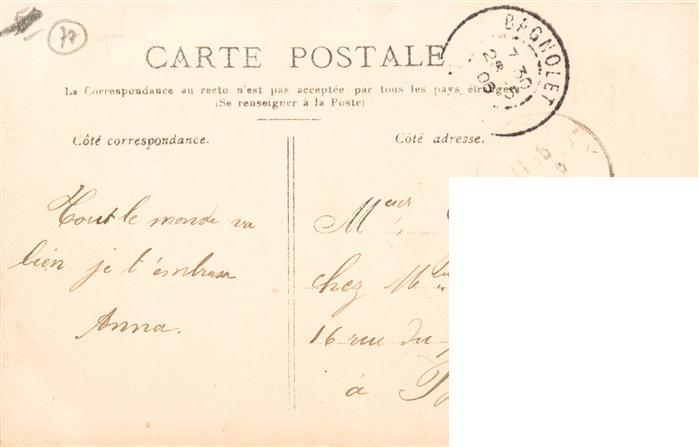 77
CARTE POSTALE
BAGNOLET
7 30
La Correspondance au recto n'est pas acceptée par tous les pays étrangers
(Se renseigner à la Poste)
Côté correspondance.
Côté adresse.
Tout le monde va
bien je t'embrasse
Anna.
Meur
chez M
16 rue du
à